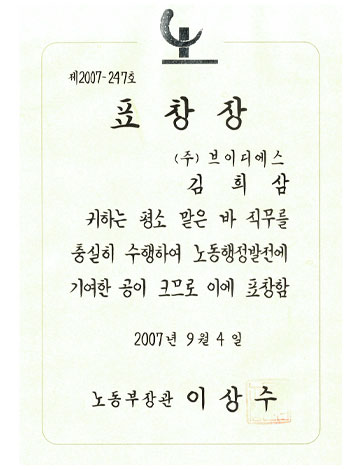 제2007-247호
표창장
(주) 브이디에스
김희삼
귀하는 평소 맡은 바 직무를
충실히 수행하여 노동행정발전에
기여한 공이 크므로 이에 표창함
2007년 9월 4일
노동부장관 이상수